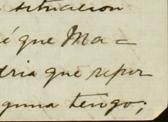 situacion
é que Ma=
dria que repor
guna tengo;